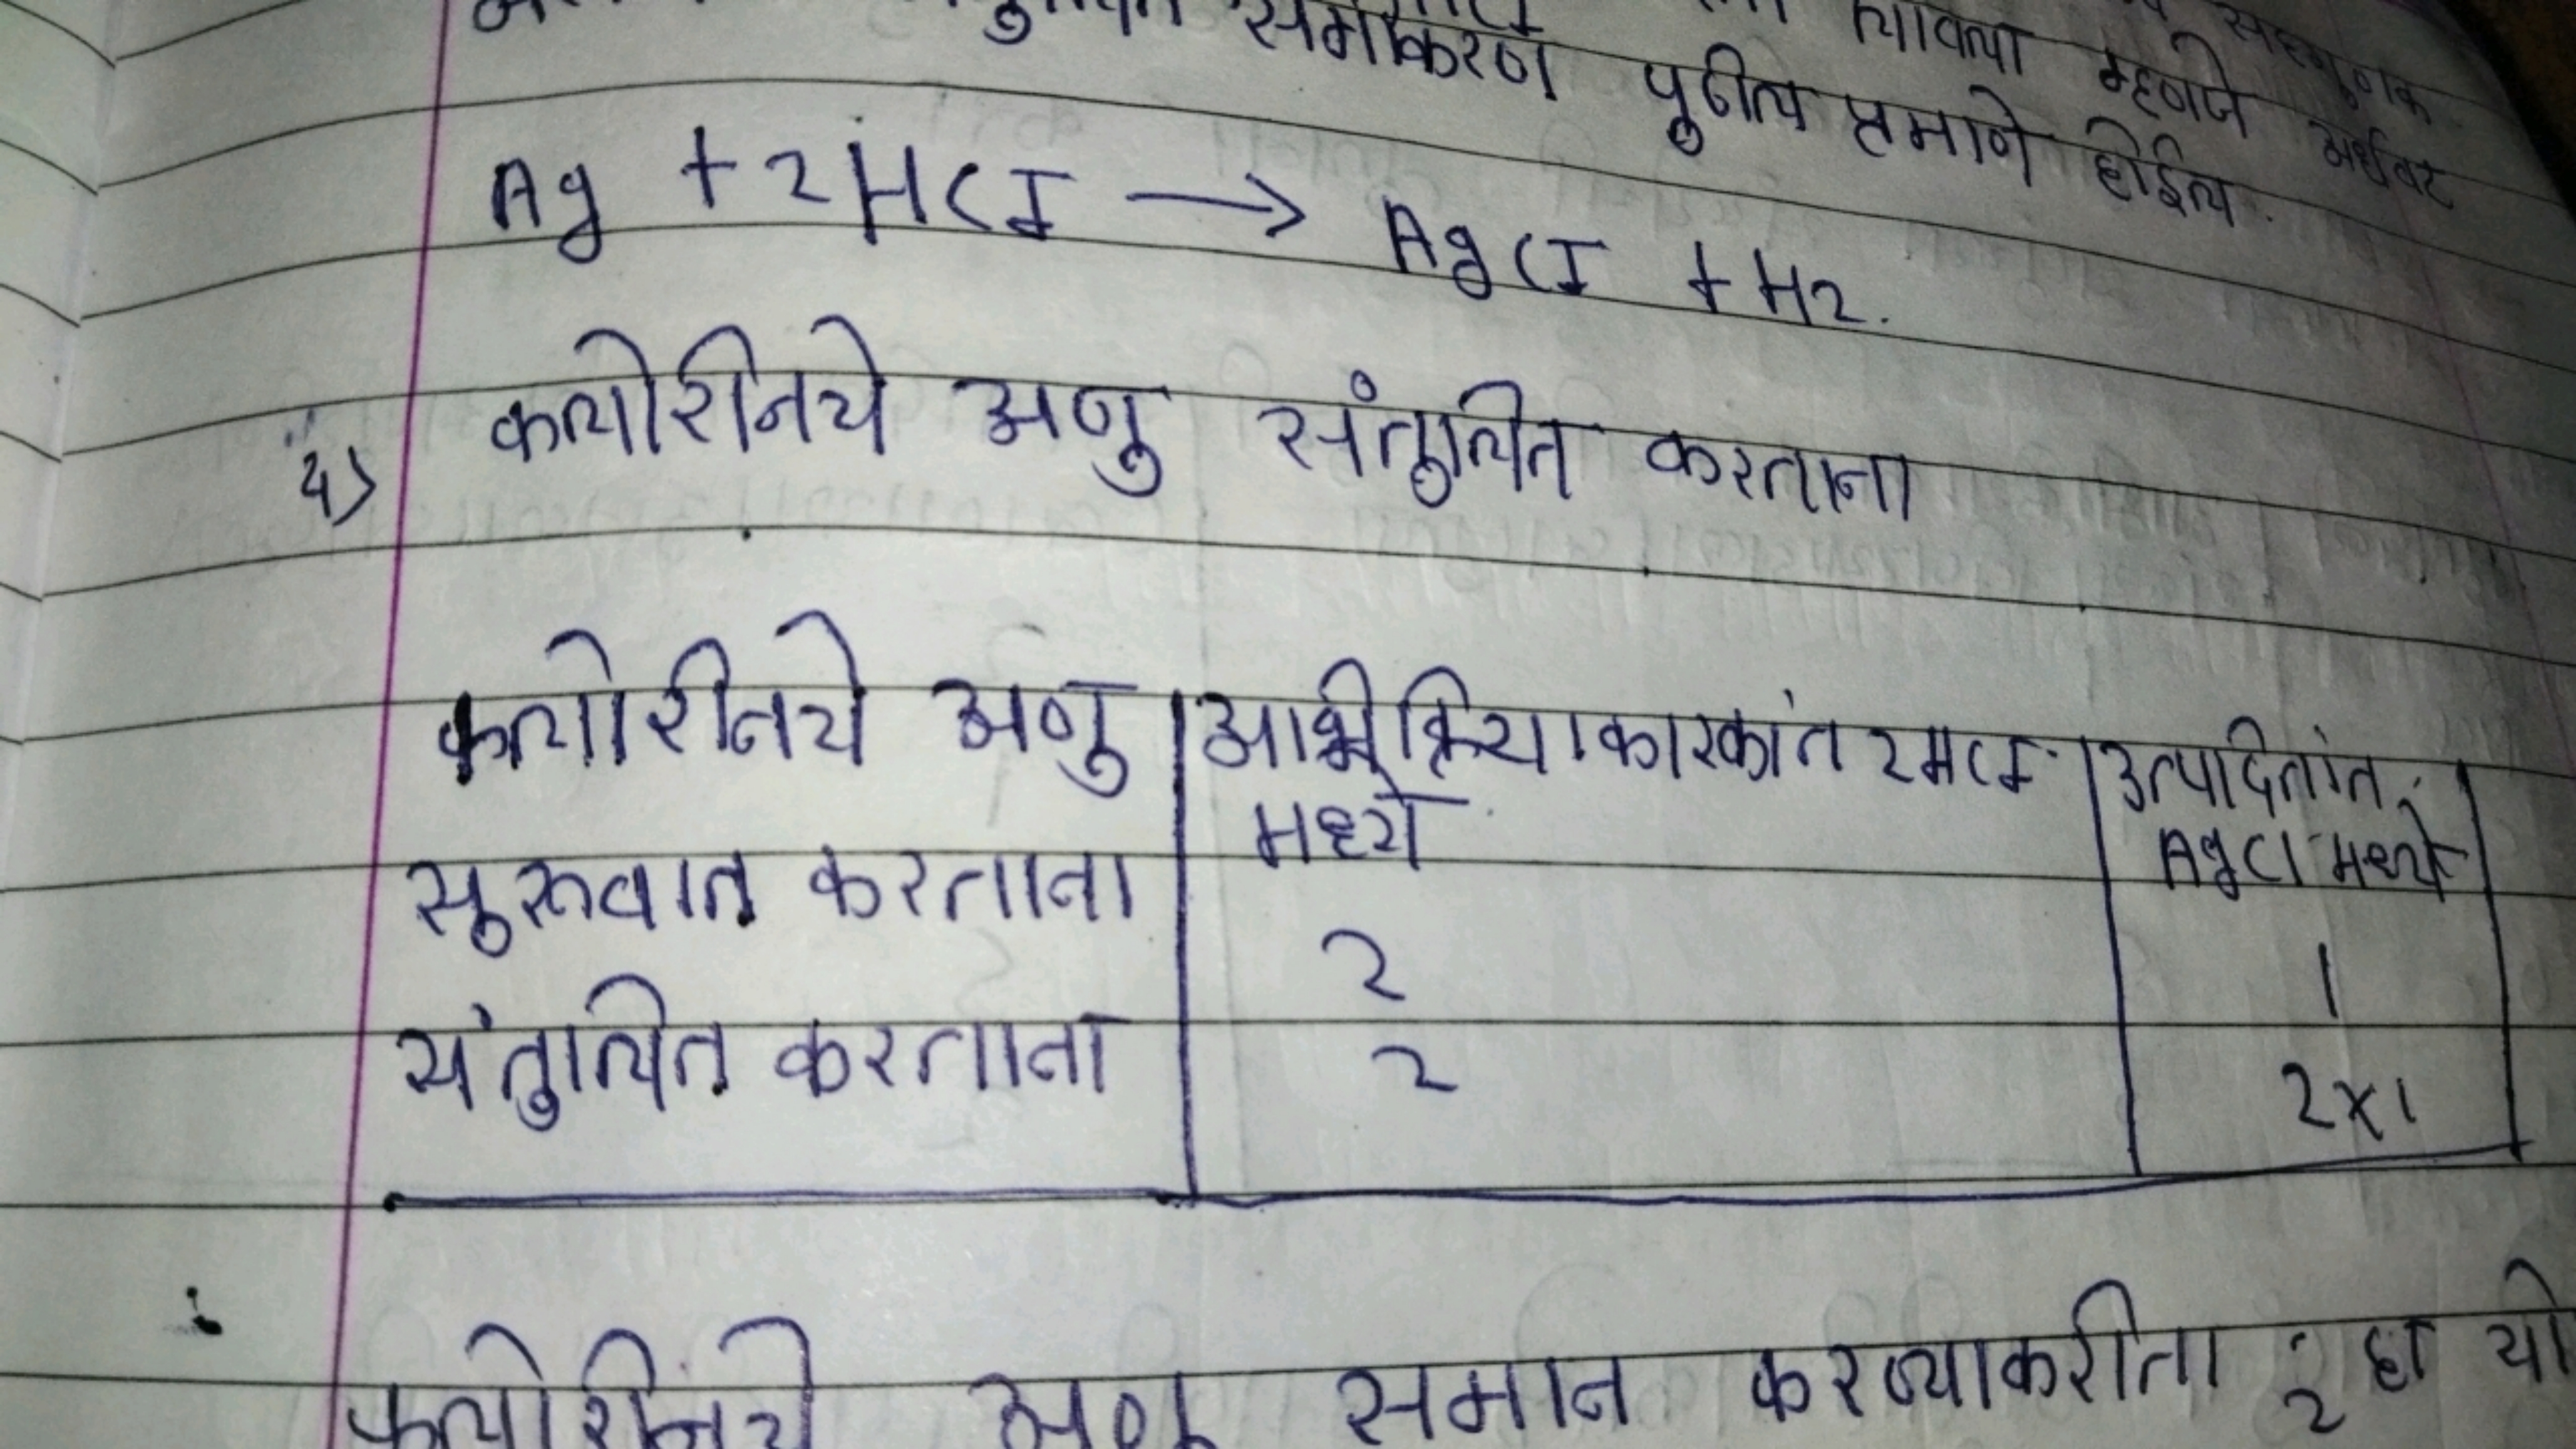 समीकरण पुढील प्रमाणे होईल.
म्हणजे अर्धवट
Ag + 2HCl → AgCl + H2.
4) क्लोरीनचे अणु संतुलित करताना
क्लोरीनचे अणु | अभीक्रियाकारकांत 2HCl मध्ये | उत्पादितांत AgCl मध्ये
सुरूवात करताना 2 1
संतुलित करताना 2 2x1
क्लोरीनचे अणु समान करण्याकरीता 2 हा